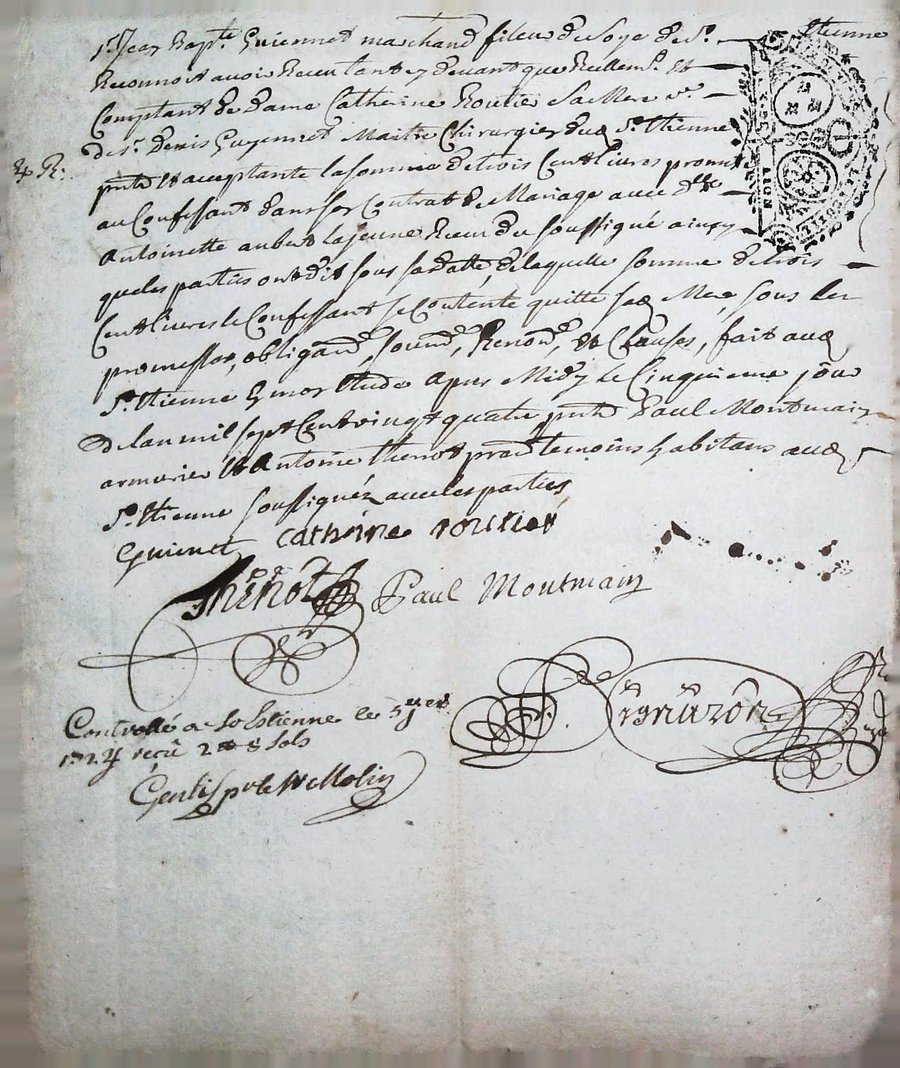 Sr. Jean Bapte. Guiennet marchand fileur de Soye de St. Etienne
Reconnoit avoir Receu tant cy devant que Reellemt. Et
Comptant de dame Catherine Rouliez Sa Mere ve.
de sr. Denis Guyennet Maitre Chirurgien dud St. Etienne
pnte Et acceptante la somme de trois Cent livres promise
au Confessant dans son Contrat de Mariage avec dlle
Antoinette aubert la jeune Receu du soussigné ainsy
que les parties ont dit sous sa datte de laquelle somme de trois
Cent livres le Confessant se Contente quitte sad Mere, sous les
promesses, obligaons, soumd, Renonons, Et Clauses, fait aud
St. Etienne En mon Etude apres Midy le Cinquieme jour
de lan mil sept Cent vingt quatre pnts Paul Montmain
armurier Et Antoine Thenot praen temoins habitans aud
St. Etienne soussignéz avec les parties
Guienet Catherine rouliez
Thenot Paul Montmain
Controllé a St Estienne le 5 jer
1724 reçu 2# 8 sols
pr le Sr Molin